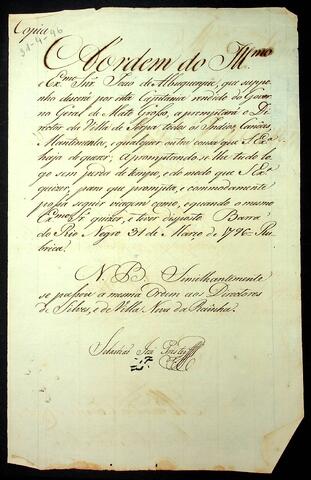 Copia
31-4-96
A Ordem do Illmo
e Exmo Snr. João de Albuquerque, que suppo-
nho descerá por esta Capitania vindo do Gover-
no Geral de Mato Grosso, apromptará o Di-
rector da Villa de Serpa todos os Indios, Canôas,
Mantimentos, e qualquer outra cousa que S. Exa
haja de querer; Apromptando-se-lhe tudo lo-
go sem perda de tempo, e do modo que S. Exa
quizer, para que prompta, e commodamente
possa seguir viagem como, e quando o mesmo
Exmo Sr quizer, e tiver disposto Barra
do Rio Negro 31 de Março de 1796 = Ru-
brica.
NB. Similhantemente
se passou a mesma Ordem aos Directores
de Silves, e de Villa Nova da Rainha.
Sebastião Joze